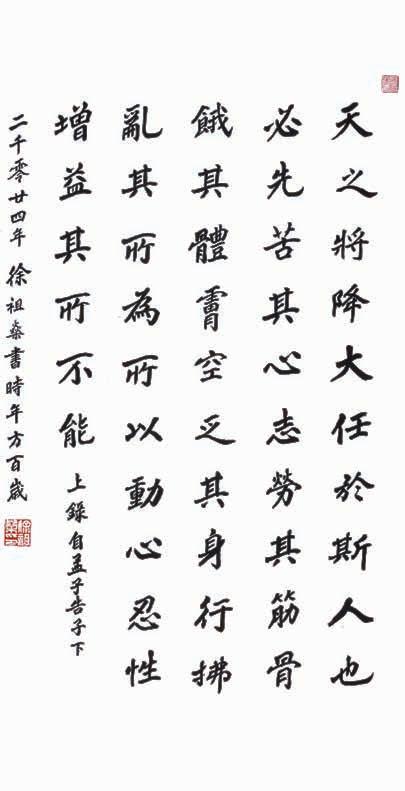 天之將降大任於斯人也
必先苦其心志勞其筋骨
餓其體膚空乏其身行拂
亂其所為所以動心忍性
增益其所不能 上錄自孟子告子下
二千零廿四年 徐祖書時年方百歲